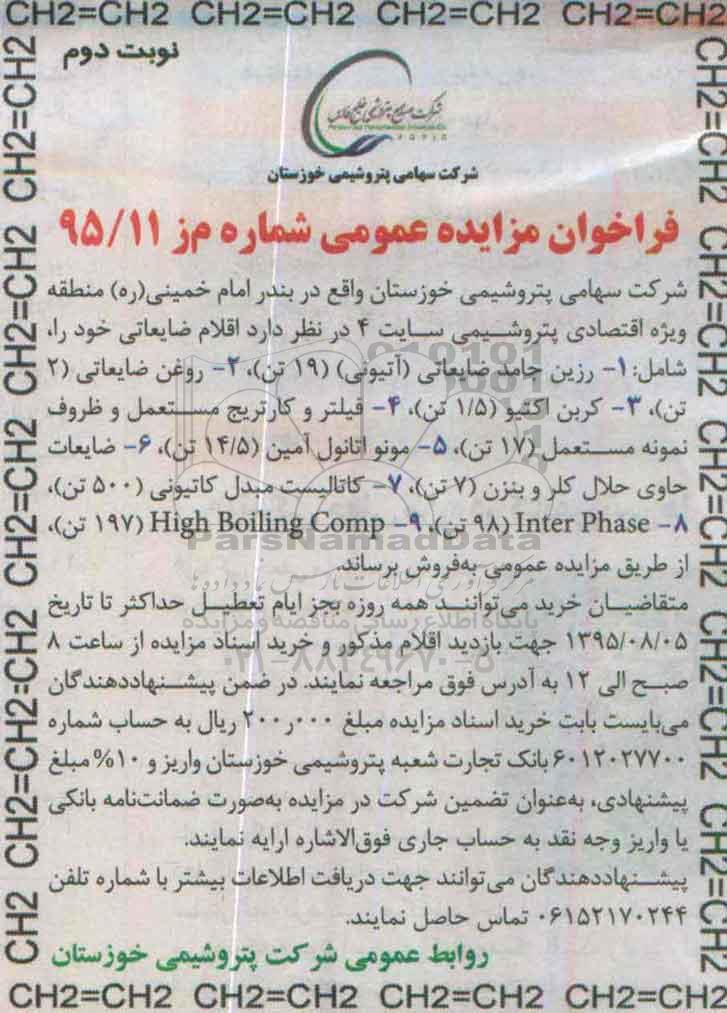 CH2=CH2 CH2=CH2 CH2=CH2 CH2=CH2
نوبت دوم
شرکت صنایع پتروشیمی خلیج فارس
P G P I C
شرکت سهامی پتروشیمی خوزستان
فراخوان مزایده عمومی شماره م‌ز ۹۵/۱۱
شرکت سهامی پتروشیمی خوزستان واقع در بندر امام خمینی(ره) منطقه
ویژه اقتصادی پتروشیمی سایت ۴ در نظر دارد اقلام ضایعاتی خود را،
شامل: ۱- رزین جامد ضایعاتی (آتیونی) (۱۹ تن)، ۲- روغن ضایعاتی (۲
تن)، ۳- کربن اکتیو (۱/۵ تن)، ۴- فیلتر و کارتریج مستعمل و ظروف
نمونه مستعمل (۱۷ تن)، ۵- مونو اتانول آمین (۱۴/۵ تن)، ۶- ضایعات
حاوی حلال کلر و بنزن (۷ تن)، ۷- کاتالیست مبدل کاتیونی (۵۰۰ تن)،
۸- Inter Phase (۹۸ تن)، ۹- High Boiling Comp (۱۹۷ تن)،
از طریق مزایده عمومی به‌فروش برساند.
متقاضیان خرید می‌توانند همه روزه بجز ایام تعطیل حداکثر تا تاریخ
۱۳۹۵/۰۸/۰۵ جهت بازدید اقلام مذکور و خرید اسناد مزایده از ساعت ۸
صبح الی ۱۲ به آدرس فوق مراجعه نمایند. در ضمن پیشنهاددهندگان
می‌بایست بابت خرید اسناد مزایده مبلغ ۲۰۰٫۰۰۰ ریال به حساب شماره
۶۰۱۲۰۲۷۷۰۰ بانک تجارت شعبه پتروشیمی خوزستان واریز و ۱۰% مبلغ
پیشنهادی، به‌عنوان تضمین شرکت در مزایده به‌صورت ضمانت‌نامه بانکی
یا واریز وجه نقد به حساب جاری فوق‌الاشاره ارایه نمایند.
پیشنهاددهندگان می‌توانند جهت دریافت اطلاعات بیشتر با شماره تلفن
۰۶۱۵۲۱۷۰۲۴۴ تماس حاصل نمایند.
روابط عمومی شرکت پتروشیمی خوزستان
CH2=CH2 CH2=CH2 CH2=CH2 CH2=CH2
CH2 CH2=CH2 CH2=CH2 CH2=CH2 CH2=CH2
CH2=CH2 CH2=CH2 CH2=CH2 CH2=CH2
ParsNamadData
پایگاه اطلاع رسانی مناقصه و مزایده
۰۲۱-۸۸۳۴۹۶۷۰-۵